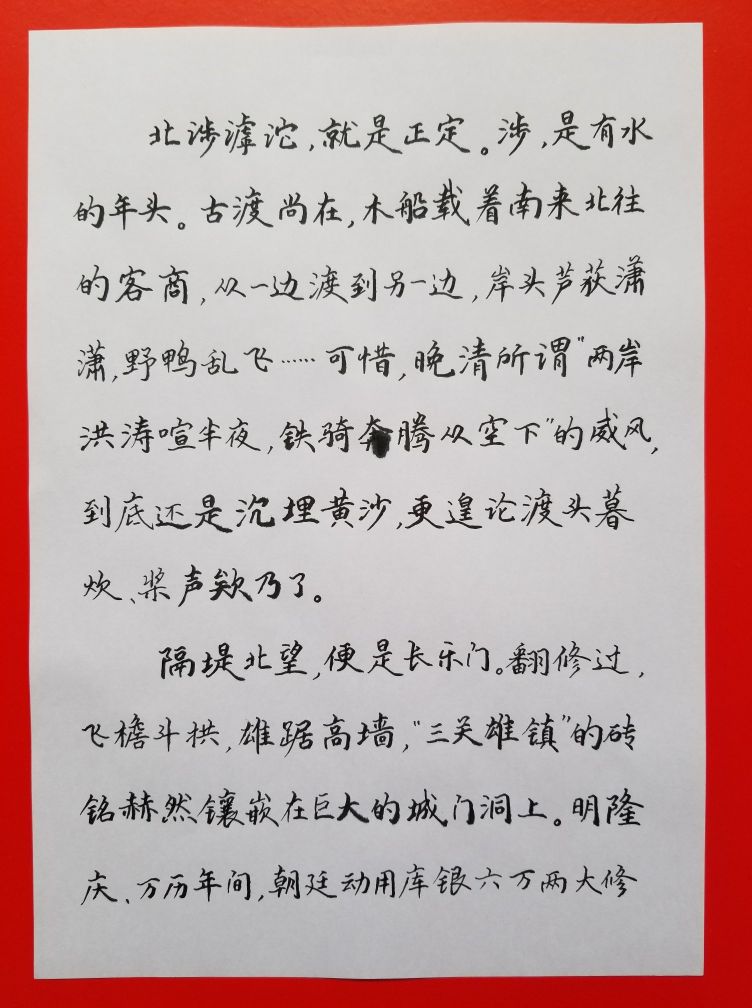 北涉滹沱,就是正定。涉,是有水
的年头。古渡尚在,木船载着南来北往
的客商,从一边渡到另一边,岸头芦荻潇
潇,野鸭乱飞……可惜,晚清所谓“两岸
洪涛喧半夜,铁骑奔腾从空下”的威风,
到底还是沉埋黄沙,更遑论渡头暮
炊、桨声欸乃了。
隔堤北望,便是长乐门。翻修过,
飞檐斗拱,雄踞高墙,“三关雄镇”的砖
铭赫然镶嵌在巨大的城门洞上。明隆
庆、万历年间,朝廷动用库银六万两大修